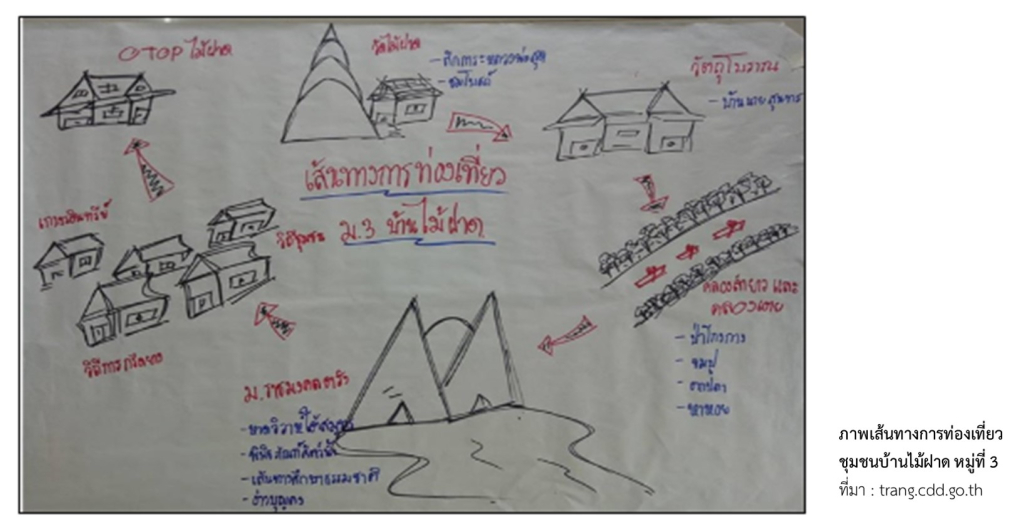 OTOP ไม้ฝาด
วัดไม้ฝาด
- ชมโบสถ์
วัตถุโบราณ
- บ้านนายสุนทร
เส้นทางการท่องเที่ยว
ม.3 บ้านไม้ฝาด
เกษตรอินทรีย์
วิถีชุมชน
คลองลำยาว และ
- ป่าโกงกาง
- ชมปู
- ตกปลา
- หาหอย
ม.ราชมงคลตรัง
- เส้นทางศึกษาธรรมชาติ
- อ่าวบุญคง
ภาพเส้นทางการท่องเที่ยว
ชุมชนบ้านไม้ฝาด หมู่ที่ 3
ที่มา : trang.cdd.go.th